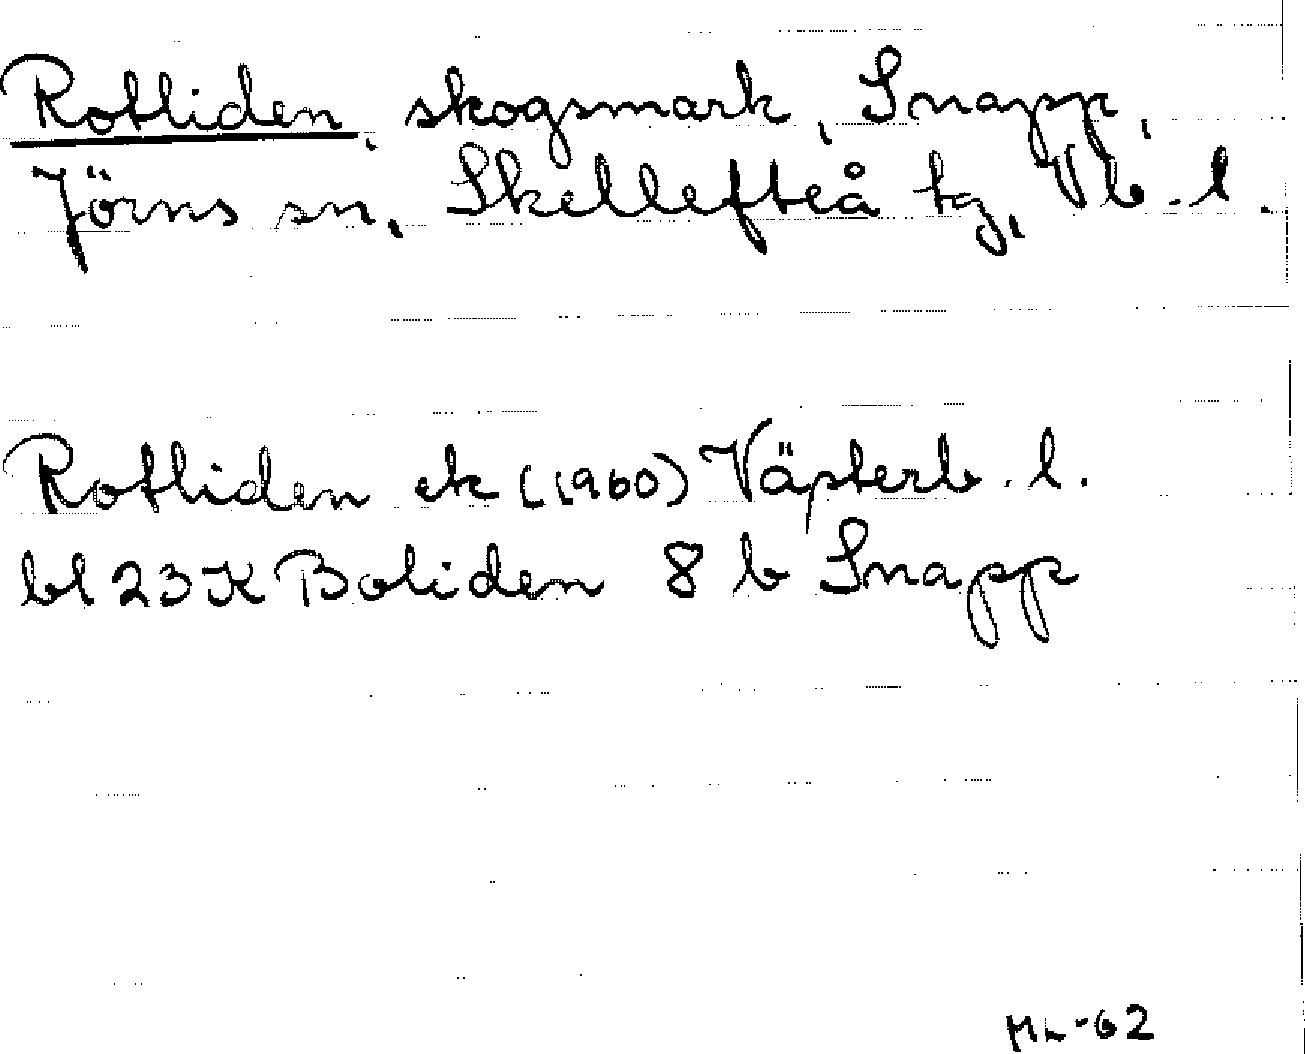 Rotliden, skogsmark, Snapp,
Jörns sn, Skellefteå tg, Vb. l.
Rotliden ek (1960) Västerb. l.
bl 23 K Boliden 8 b Snapp
ML-62